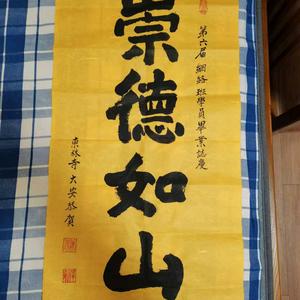 第六屆網路班學員畢業誌慶
崇德如山
東林寺大安恭賀